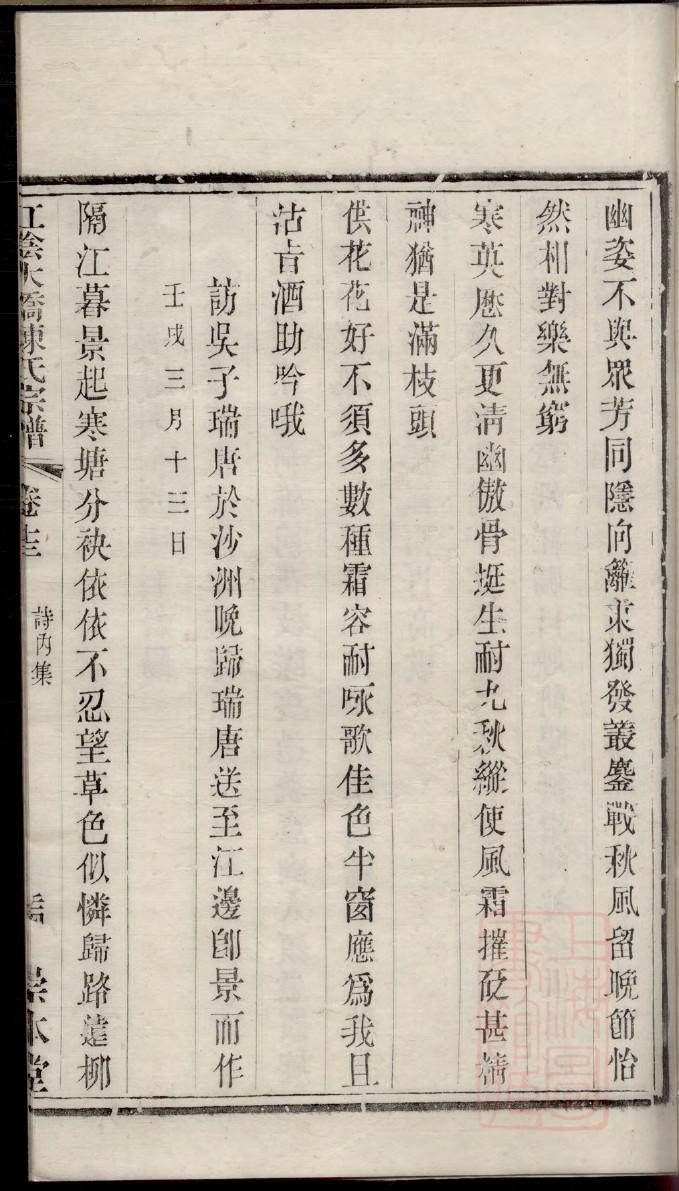 幽姿不與眾芳同隱向籬東獨發叢鏖戰秋風留晚節怡
然相對樂無窮
寒英歷久更清幽傲骨挺生耐九秋縱使風霜摧砭甚精
神猶是滿枝頭
供花花好不須多數種霜容耐咏歌佳色半窗應爲我且
沽旨酒助吟哦
訪吳子瑞唐於沙洲晚歸瑞唐送至江邊卽景而作
壬戌三月十三日
隔江暮景起寒塘分袂依依不忍望草色似憐歸路遠柳
江陰大橋陳氏宗譜 卷十三 詩內集 崇本堂
上海圖書館藏